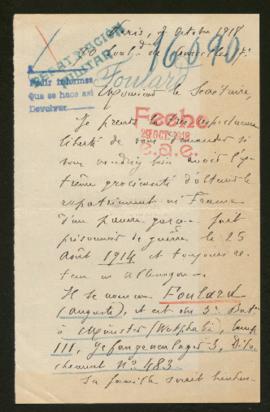 Paris, 9 octobre 1918
16090
Pedir informes
Que se haga así
Devolver
MILITAR
Foulard
Monsieur le Secrétaire,
Je prends la respectueuse
liberté de vous demander si
vous voudriez bien avoir l'ex-
trême obligeance d'obtenir le
rapatriement en France
d'un pauvre garçon fait
prisonnier de guerre le 25
Août 1914 et toujours re-
tenu en Allemagne.
Fecha
29 OCT. 1918
E.a.e.
Il se nomme Foulard
(Auguste), et est au 3e Bat.
à Münster (Westphalie), camp
III, Gefangenenlager 3,
N° 483.
Sa famille serait